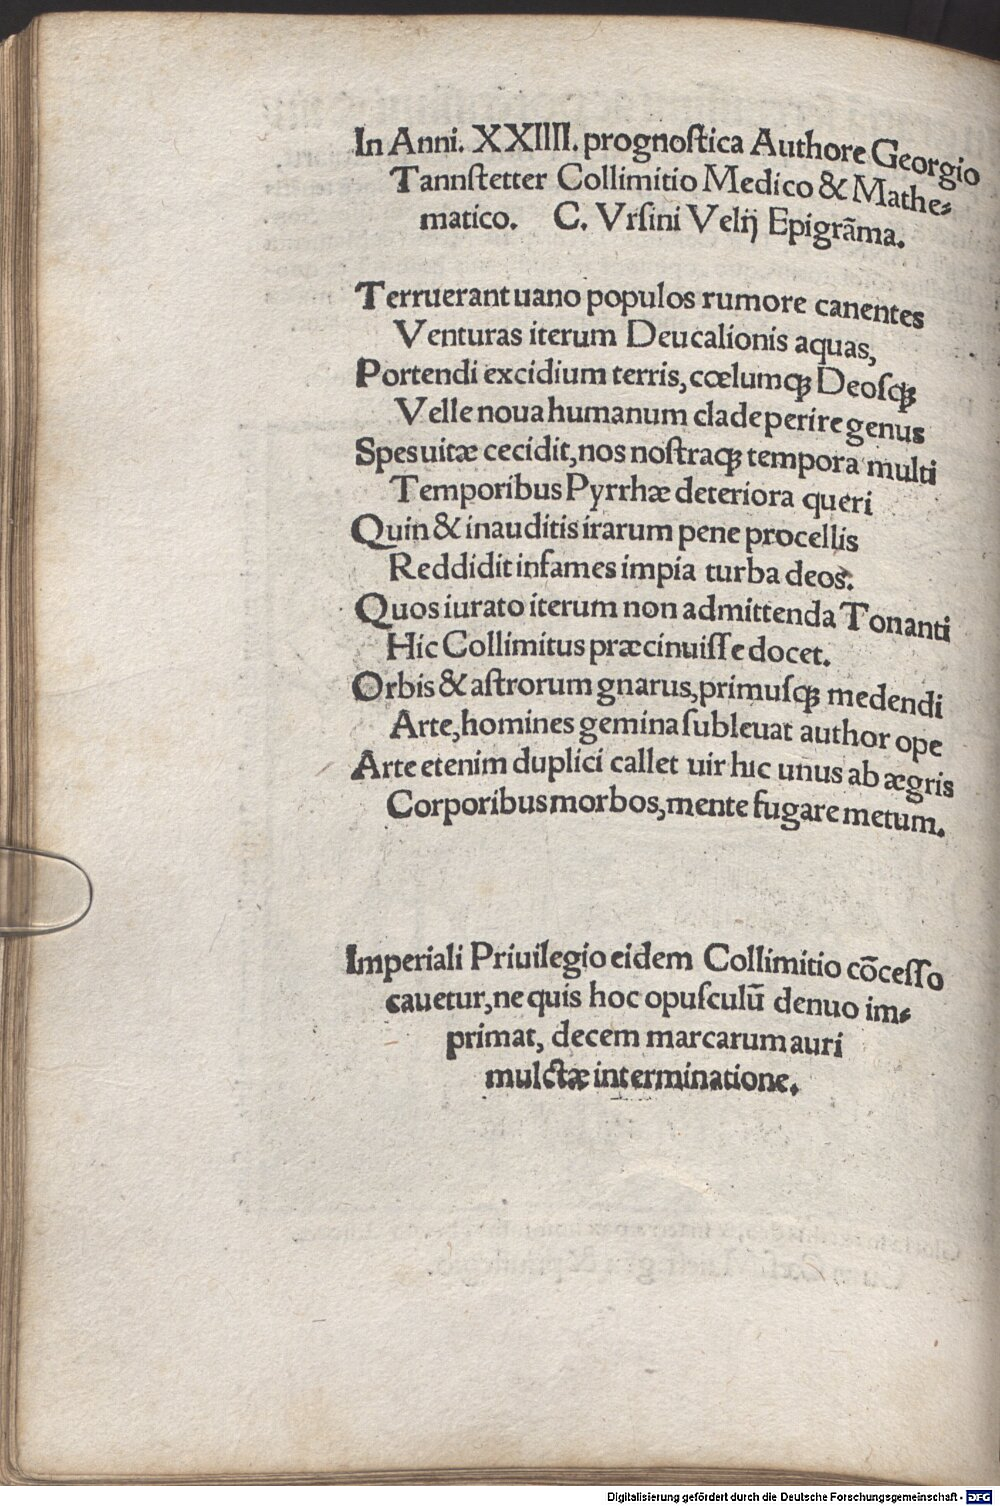 In Anni. XXIIII. prognoſtica Authore Georgio
Tannſtetter Collimitio Medico & Mathe⸗
matico. C. Vrſini Velĳ Epigrãma.
Terruerant uano populos rumore canentes
Venturas iterum Deucalionis aquas,
Portendi excidium terris, cœlumqꝫ Deoſqꝫ
Velle noua humanum clade perire genus
Spes uitæ cecidit, nos noſtraqꝫ tempora multi
Temporibus Pyrrhæ deteriora queri
Quin & inauditis irarum pene procellis
Reddidit infames impia turba deos.
Quos iurato iterum non admittenda Tonanti
Hic Collimitus præcinuiſſe docet.
Orbis & aſtrorum gnarus, primuſqꝫ medendi
Arte, homines gemina ſubleuat author ope
Arte etenim duplici callet uir hic unus ab ægris
Corporibus morbos, mente fugare metum.
Imperiali Priuilegio eidem Collimitio cõceſſo
cauetur, ne quis hoc opuſculũ denuo im⸗
primat, decem marcarum auri
mulctæ interminatione.
Digitalisierung gefördert durch die Deutsche Forschungsgemeinschaft - DFG